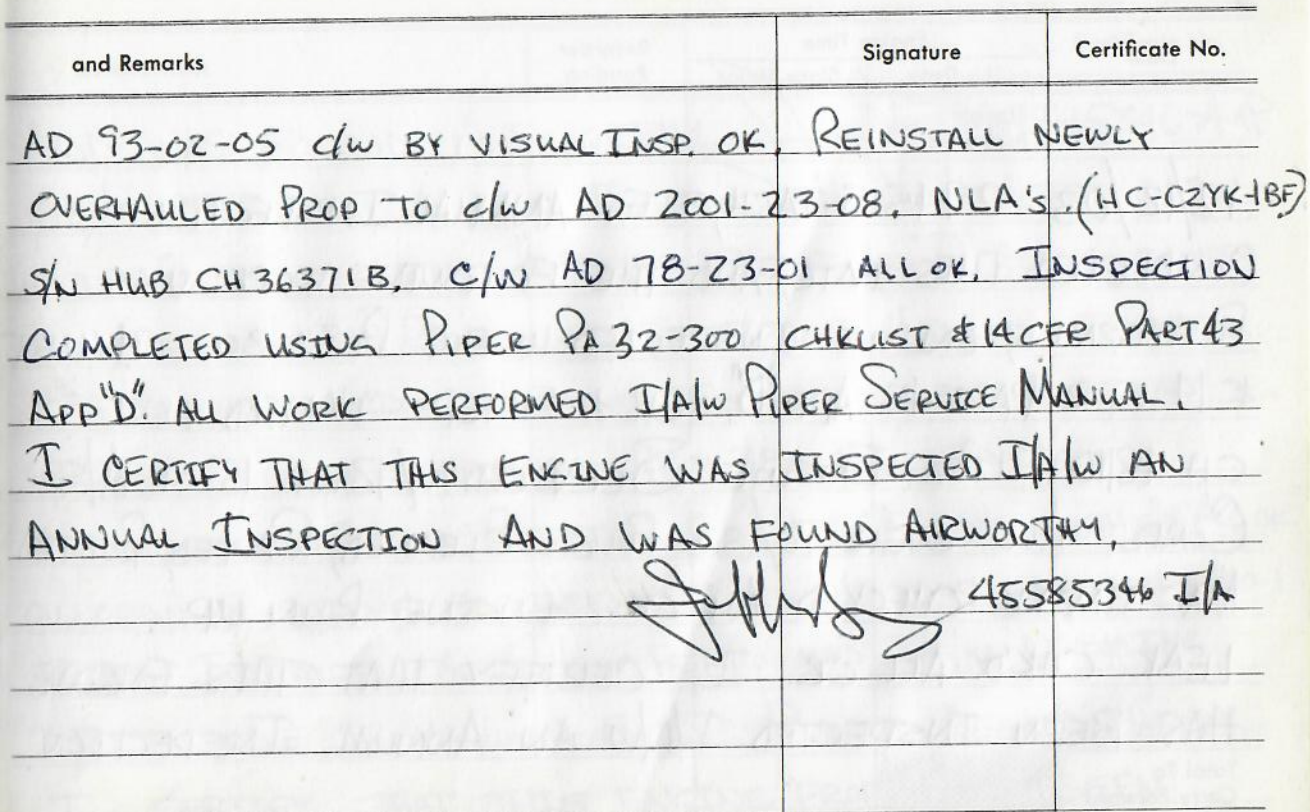 and Remarks Signature Certificate No.
AD 93-02-05 c/w BY VISUAL INSP. OK. REINSTALL NEWLY
OVERHAULED PROP TO c/w AD 2001-23-08. NLA's. (HC-C2YK-1BF)
S/N HUB CH36371B. C/W AD 78-23-01 ALL OK. INSPECTION
COMPLETED USING PIPER PA32-300 CHKLIST & 14 CFR PART 43
APP "D". ALL WORK PERFORMED I/A/W PIPER SERVICE MANUAL.
I CERTIFY THAT THIS ENGINE WAS INSPECTED I/A/W AN
ANNUAL INSPECTION AND WAS FOUND AIRWORTHY.
45585346 I/A